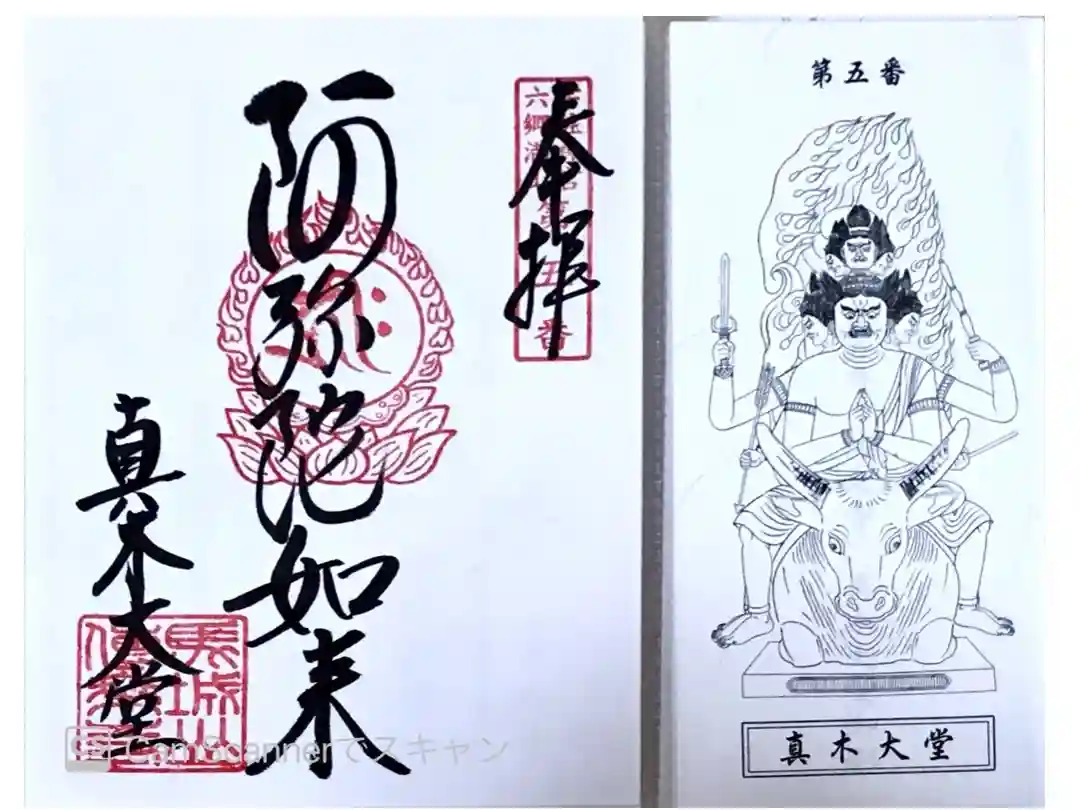 奉拝
六郷満
五番
阿弥陀如来
真木大堂
馬城山
CS CamScannerでスキャン
第五番
真木大堂